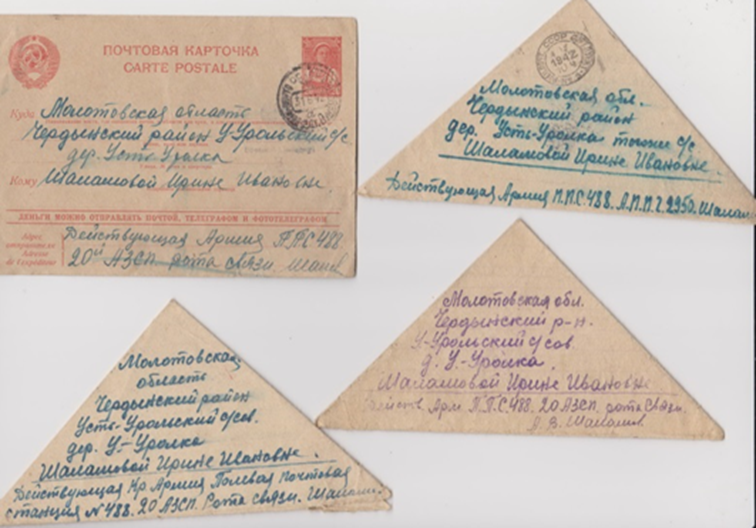 ПОЧТОВАЯ КАРТОЧКА
CARTE POSTALE
Куда Молотовская область
Чердынский район У-Урольский с/с
дер. Усть-Уролка
Кому Шалашовой Ирине Ивановне.
ДЕНЬГИ МОЖНО ОТПРАВЛЯТЬ ПОЧТОЙ, ТЕЛЕГРАФОМ И ФОТОТЕЛЕГРАФОМ
Адрес отправителя
Adresse de l'expéditeur
Действующая Армия ППС 488
20й АЗСП. рота связи. Шалаш
1942
Молотовская обл.
Чердынский район
дер. Усть-Уролка того же с/с
Шалашовой Ирине Ивановне.
Действующая Армия П.П.С 488. А.П.П. Шалаш
Молотовская обл.
Чердынский р-н.
У-Урольский с/сов.
д. У.-Уролка.
Шалашовой Ирине Ивановне
Действ. Арм. П.П.С 488. 20 АЗСП. рота связи.
А. В. Шалашов.
Молотовская
область
Чердынский район
Усть-Урольский с/сов.
дер. У-Уролка
Шалашовой Ирине Ивановне.
Действующая Кр Армия Полевая почтовая
станция N 488. 20 АЗСП. Рота связи. Шалаш